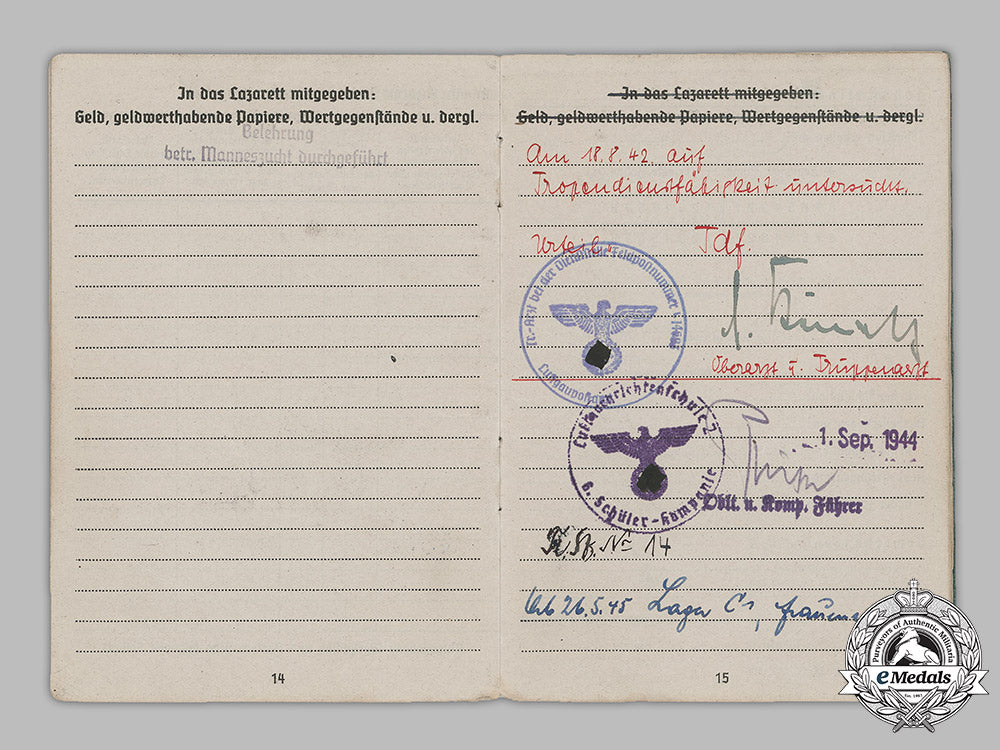 In das Lazarett mitgegeben:
Geld, geldwerthabende Papiere, Wertgegenstände u. dergl.
Belehrung
betr. Manneszucht durchgeführt
14
In das Lazarett mitgegeben:
Geld, geldwerthabende Papiere, Wertgegenstände u. dergl.
Am 18.8.42 auf
Tropendienstfähigkeit untersucht.
Urteil: Tdf.
Tr.-Arzt bei der Dienststelle Feldpostnummer L
Luftgaupostamt
Oberarzt u. Truppenarzt
Luftnachrichtenschule 2
6. Schüler-Kompanie
1. Sep. 1944
Oblt. u. Komp. Führer
No 14
26.5.45 Lager
15
Purveyors of Authentic Militaria
eMedals